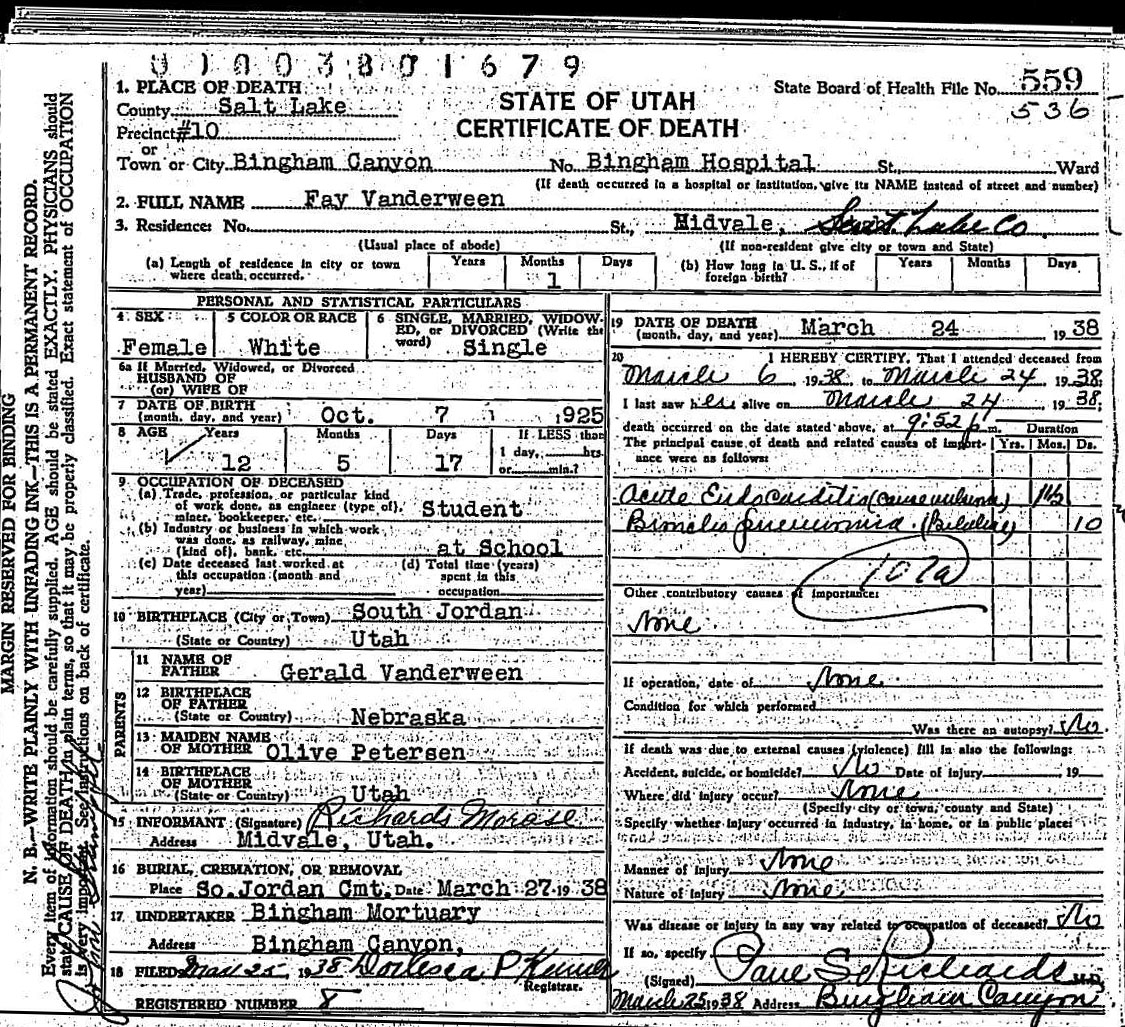 0 1 0 0 3 8 0 1 6 7 9
State Board of Health File No. 559
536
1. PLACE OF DEATH
County Salt Lake
Precinct #10
or
Town or City Bingham Canyon No. Bingham Hospital St., Ward
STATE OF UTAH
CERTIFICATE OF DEATH
(If death occurred in a hospital or institution, give its NAME instead of street and number)
2. FULL NAME Fay Vanderween
3. Residence: No. St., Midvale, Salt Lake Co.
(Usual place of abode) (If non-resident give city or town and State)
(a) Length of residence in city or town where death occurred. Years Months 1 Days
(b) How long in U. S., if of foreign birth? Years Months Days
PERSONAL AND STATISTICAL PARTICULARS
4 SEX Female
5 COLOR OR RACE White
6 SINGLE, MARRIED, WIDOWED, or DIVORCED (Write the word) Single
6a If Married, Widowed, or Divorced
HUSBAND OF
(or) WIFE OF
7 DATE OF BIRTH
(month, day, and year) Oct. 7 1925
8 AGE Years 12 Months 5 Days 17
If LESS than
1 day, hrs.
or min.?
9 OCCUPATION OF DECEASED
(a) Trade, profession, or particular kind
of work done, as engineer (type of),
miner, bookkeeper, etc. Student
(b) Industry or business in which work
was done, as railway, mine
(kind of), bank, etc. at School
(c) Date deceased last worked at
this occupation (month and
year)
(d) Total time (years)
spent in this
occupation
10 BIRTHPLACE (City or Town) South Jordan
(State or Country) Utah
PARENTS
11 NAME OF
FATHER Gerald Vanderween
12 BIRTHPLACE
OF FATHER
(State or Country) Nebraska
13 MAIDEN NAME
OF MOTHER Olive Petersen
14 BIRTHPLACE
OF MOTHER
(State or Country) Utah
15 INFORMANT (Signature) Richards
Address Midvale, Utah.
16 BURIAL, CREMATION, OR REMOVAL
Place So. Jordan Cmt. Date March 27 19 38
17 UNDERTAKER Bingham Mortuary
Address Bingham Canyon,
18 FILED Mar 25 1938
Registrar.
REGISTERED NUMBER 8
19 DATE OF DEATH
(month, day, and year) March 24 19 38
20 I HEREBY CERTIFY, That I attended deceased from
March 6 1938 to March 24 1938;
I last saw her alive on March 24 1938;
death occurred on the date stated above, at 9:52 p m. Duration
The principal cause of death and related causes of importance were as follows: Yrs. Mos. Ds.
Acute Endocarditis
Broncho pneumonia 10
107a
Other contributory causes of importance:
None
If operation, date of None
Condition for which performed
Was there an autopsy? No
If death was due to external causes (violence) fill in also the following:
Accident, suicide, or homicide? No Date of injury 19
Where did injury occur? None
(Specify city or town, county and State)
Specify whether injury occurred in industry, in home, or in public place:
Manner of injury None
Nature of injury None
Was disease or injury in any way related to occupation of deceased? No
If so, specify
(Signed) Paul S Richards M.D.
March 25 1938 Address Bingham Canyon
MARGIN RESERVED FOR BINDING
N. B.—WRITE PLAINLY WITH UNFADING INK—THIS IS A PERMANENT RECORD.
Every item of information should be carefully supplied. AGE should be stated EXACTLY. PHYSICIANS should
state CAUSE OF DEATH in plain terms, so that it may be properly classified. Exact statement of OCCUPATION
is very important. See instructions on back of certificate.